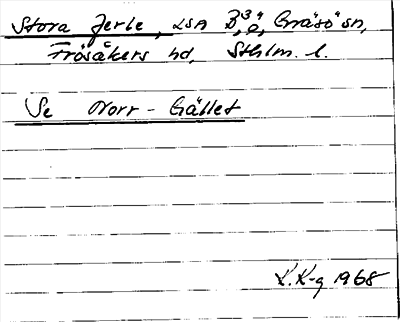 Stora Jerle, LSA B, 3, a, Gräsö sn,
Frösåkers hd, Sthlm. l.
Se Norr-Gället
K. K-g 1968